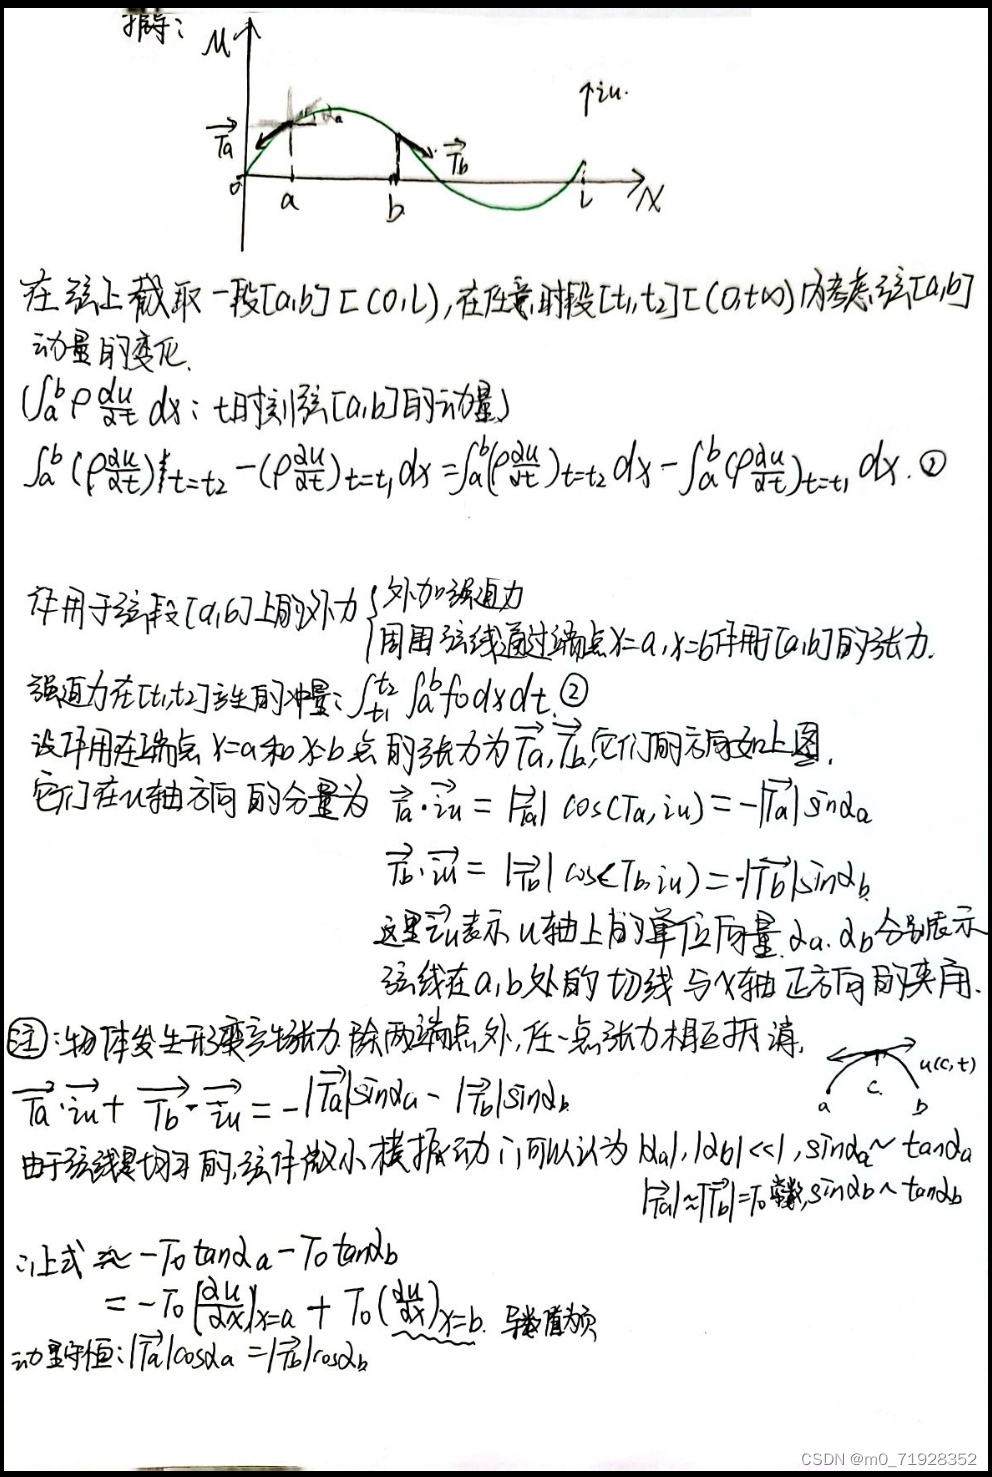 推导:
u
αa
↑iu.
Ta
Tb
0
a
b
l
X
在弦上截取一段[a,b]⊏(0,L),在任意时段[t1,t2]⊏(0,+∞)内考虑弦[a,b]
动量的变化.
(∫_a^b ρ ∂u/∂t dx: t时刻弦[a,b]的动量)
∫_a^b (ρ∂u/∂t)|t=t2 -(ρ∂u/∂t)t=t1 dx =∫_a^b(ρ∂u/∂t)t=t2 dx -∫_a^b(ρ∂u/∂t)t=t1 dx. ①
作用于弦段[a,b]上的外力{外加强迫力
周围弦线通过端点x=a,x=b作用于[a,b]的张力.
强迫力在[t1,t2]产生的冲量:∫_t1^t2 ∫_a^b f0 dx dt.②
设作用在端点x=a和x=b点的张力为Ta,Tb,它们的方向如上图.
它们在u轴方向的分量为 Ta·iu = |Ta| cos(Ta,iu)=-|Ta|sinαa
Tb·iu = |Tb| cos(Tb,iu)=-|Tb|sinαb
这里iu表示u轴上的单位向量.αa.αb分别表示
弦线在a,b处的切线与x轴正方向的夹角.
注:物体发生形变产生张力.除两端点外,任一点张力相互抵消.
a
c
b
u(c,t)
Ta·iu + Tb·iu = -|Ta|sinαa - |Tb|sinαb
由于弦线是均匀的,弦作微小横振动∴可以认为|αa|,|αb|<<1,sinαa~tanαa
|Ta|≈|Tb|=T0常数,sinαb~tanαb
∴上式≈-T0tanαa-T0tanαb
=-T0(∂u/∂x)x=a + T0(∂u/∂x)x=b. 导数值为负
动量守恒:|Ta|cosαa=|Tb|cosαb
CSDN @m0_71928352